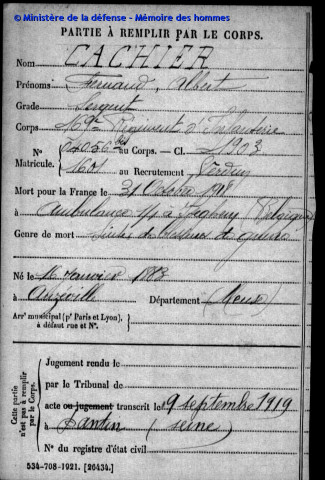 © Ministère de la défense - Mémoire des hommes
PARTIE À REMPLIR PAR LE CORPS.
Nom CACHIER
Prénoms Fernand, Albert
Grade Sergent
Corps Régiment d'Infanterie
N° au Corps. — Cl. 1903
Matricule. au Recrutement Verdun
Mort pour la France le 31 Octobre 1918
à Ambulance Belgique
Genre de mort Suites de blessures de guerre
Né le 16 Janvier 1883
à Abzéville Département (Meuse)
Arr' municipal (p' Paris et Lyon),
à défaut rue et N°.
Cette partie
n'est pas à remplir
par le Corps.
Jugement rendu le
par le Tribunal de
acte ou jugement transcrit le 9 septembre 1919
à Pantin (Seine)
N° du registre d'état civil
534-708-1921. [26434.]